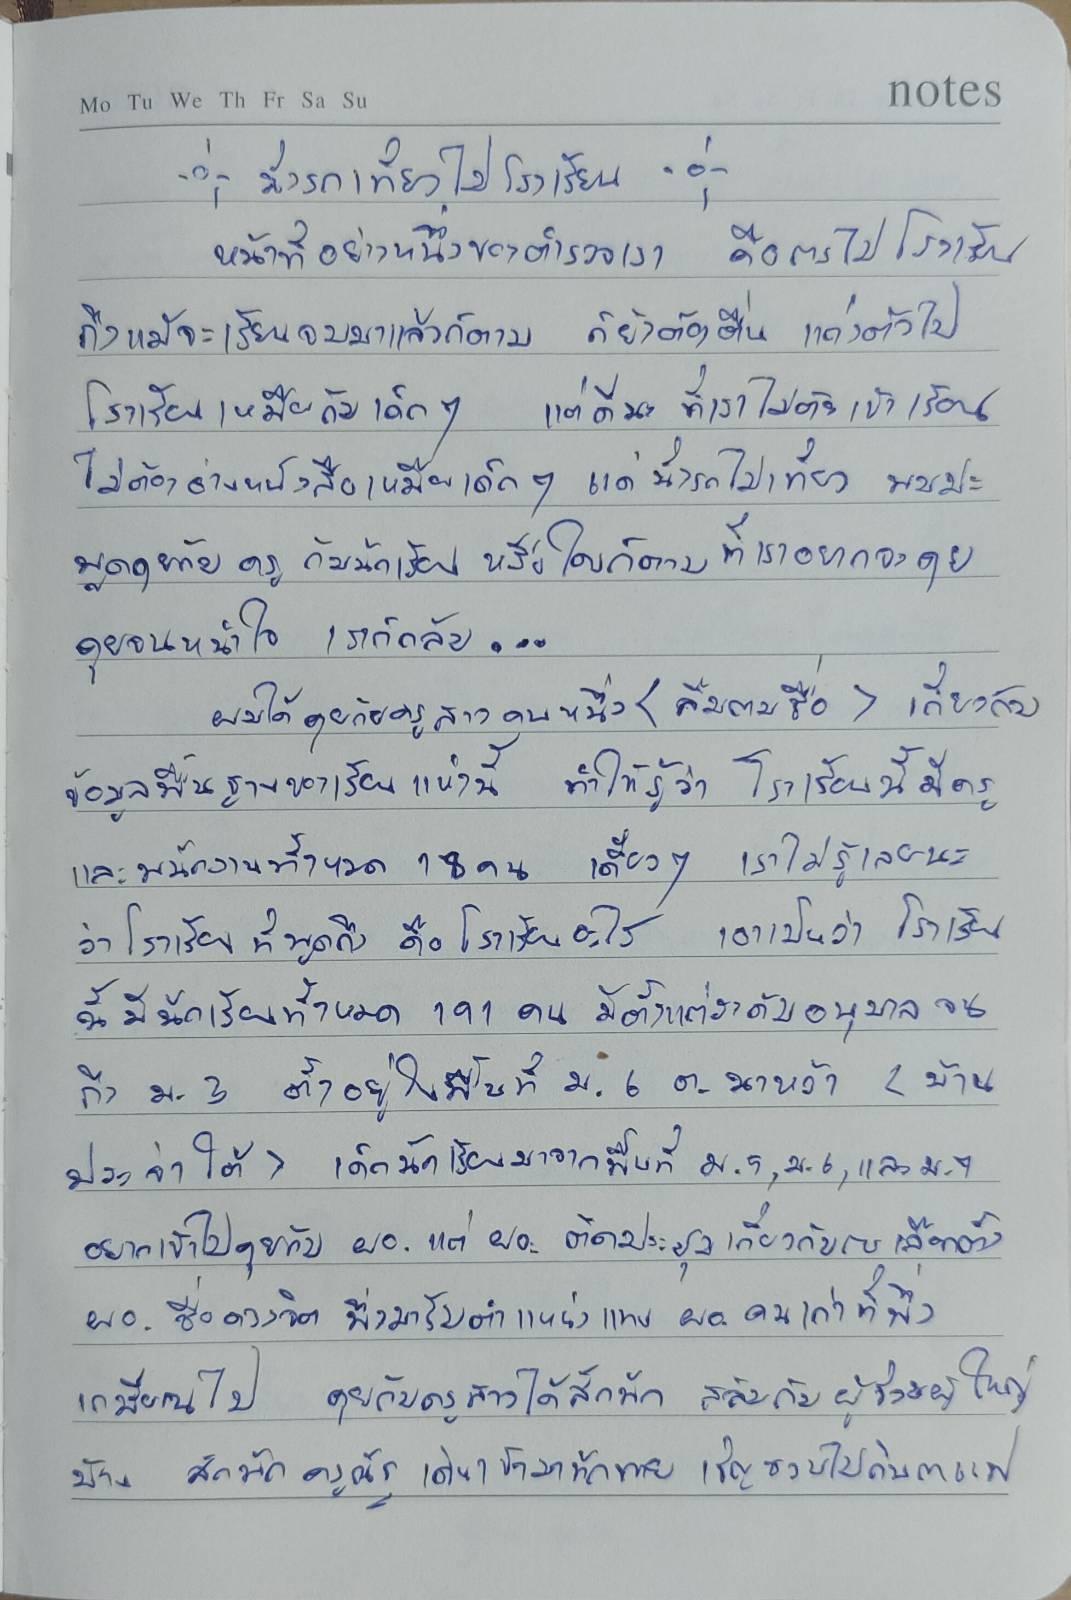 Mo Tu We Th Fr Sa Su
notes
นั่งรถเที่ยวไปโรงเรียน
หน้าที่อย่างหนึ่งของตำรวจเรา คือการไปโรงเรียน
ถึงแม้จะเรียนจบมาแล้วก็ตาม ก็ยังต้องตื่น แต่งตัวไป
โรงเรียนเหมือนกับเด็กๆ แต่ดีนะ ที่เราไม่ต้องเข้าเรียน
ไม่ต้องอ่านหนังสือเหมือนเด็กๆ แค่นั่งรถไปเที่ยว พบปะ
พูดคุยกับ ครู กับนักเรียน หรือใครก็ตามที่เราอยากจะคุย
คุยจนหนำใจ เราก็กลับ...
ผมได้คุยกับครูสาวคนหนึ่ง (ลืมถามชื่อ) เกี่ยวกับ
ข้อมูลพื้นฐานของเรียนแห่งนี้ ทำให้รู้ว่า โรงเรียนนี้มีครู
และพนักงานทั้งหมด 18 คน เดี๋ยวๆ เราไม่รู้เลยนะ
ว่าโรงเรียนที่พูดถึง คือโรงเรียนอะไร เอาเป็นว่า โรงเรียน
นี้มีนักเรียนทั้งหมด 191 คน มีตั้งแต่ระดับอนุบาล จน
ถึง ม. 3 ตั้งอยู่ในพื้นที่ ม. 6 ต. นาหว้า (บ้าน
ประจ่าใต้) เด็กนักเรียนมาจากพื้นที่ ม.5, ม.6, และ ม.9
อยากเข้าไปคุยกับ ผอ. แต่ ผอ. ติดประชุมเกี่ยวกับการเลือกตั้ง
ผอ. ชื่อดวงจิต พึ่งมารับตำแหน่งแทน ผอ. คนเก่าที่พึ่ง
เกษียณไป คุยกับครูสาวได้สักพัก สลับกับผู้ช่วยผู้ใหญ่
บ้าน สักพัก ครูณัฐ เดินเข้ามาทักทาย เชิญชวนไปกินกาแฟ